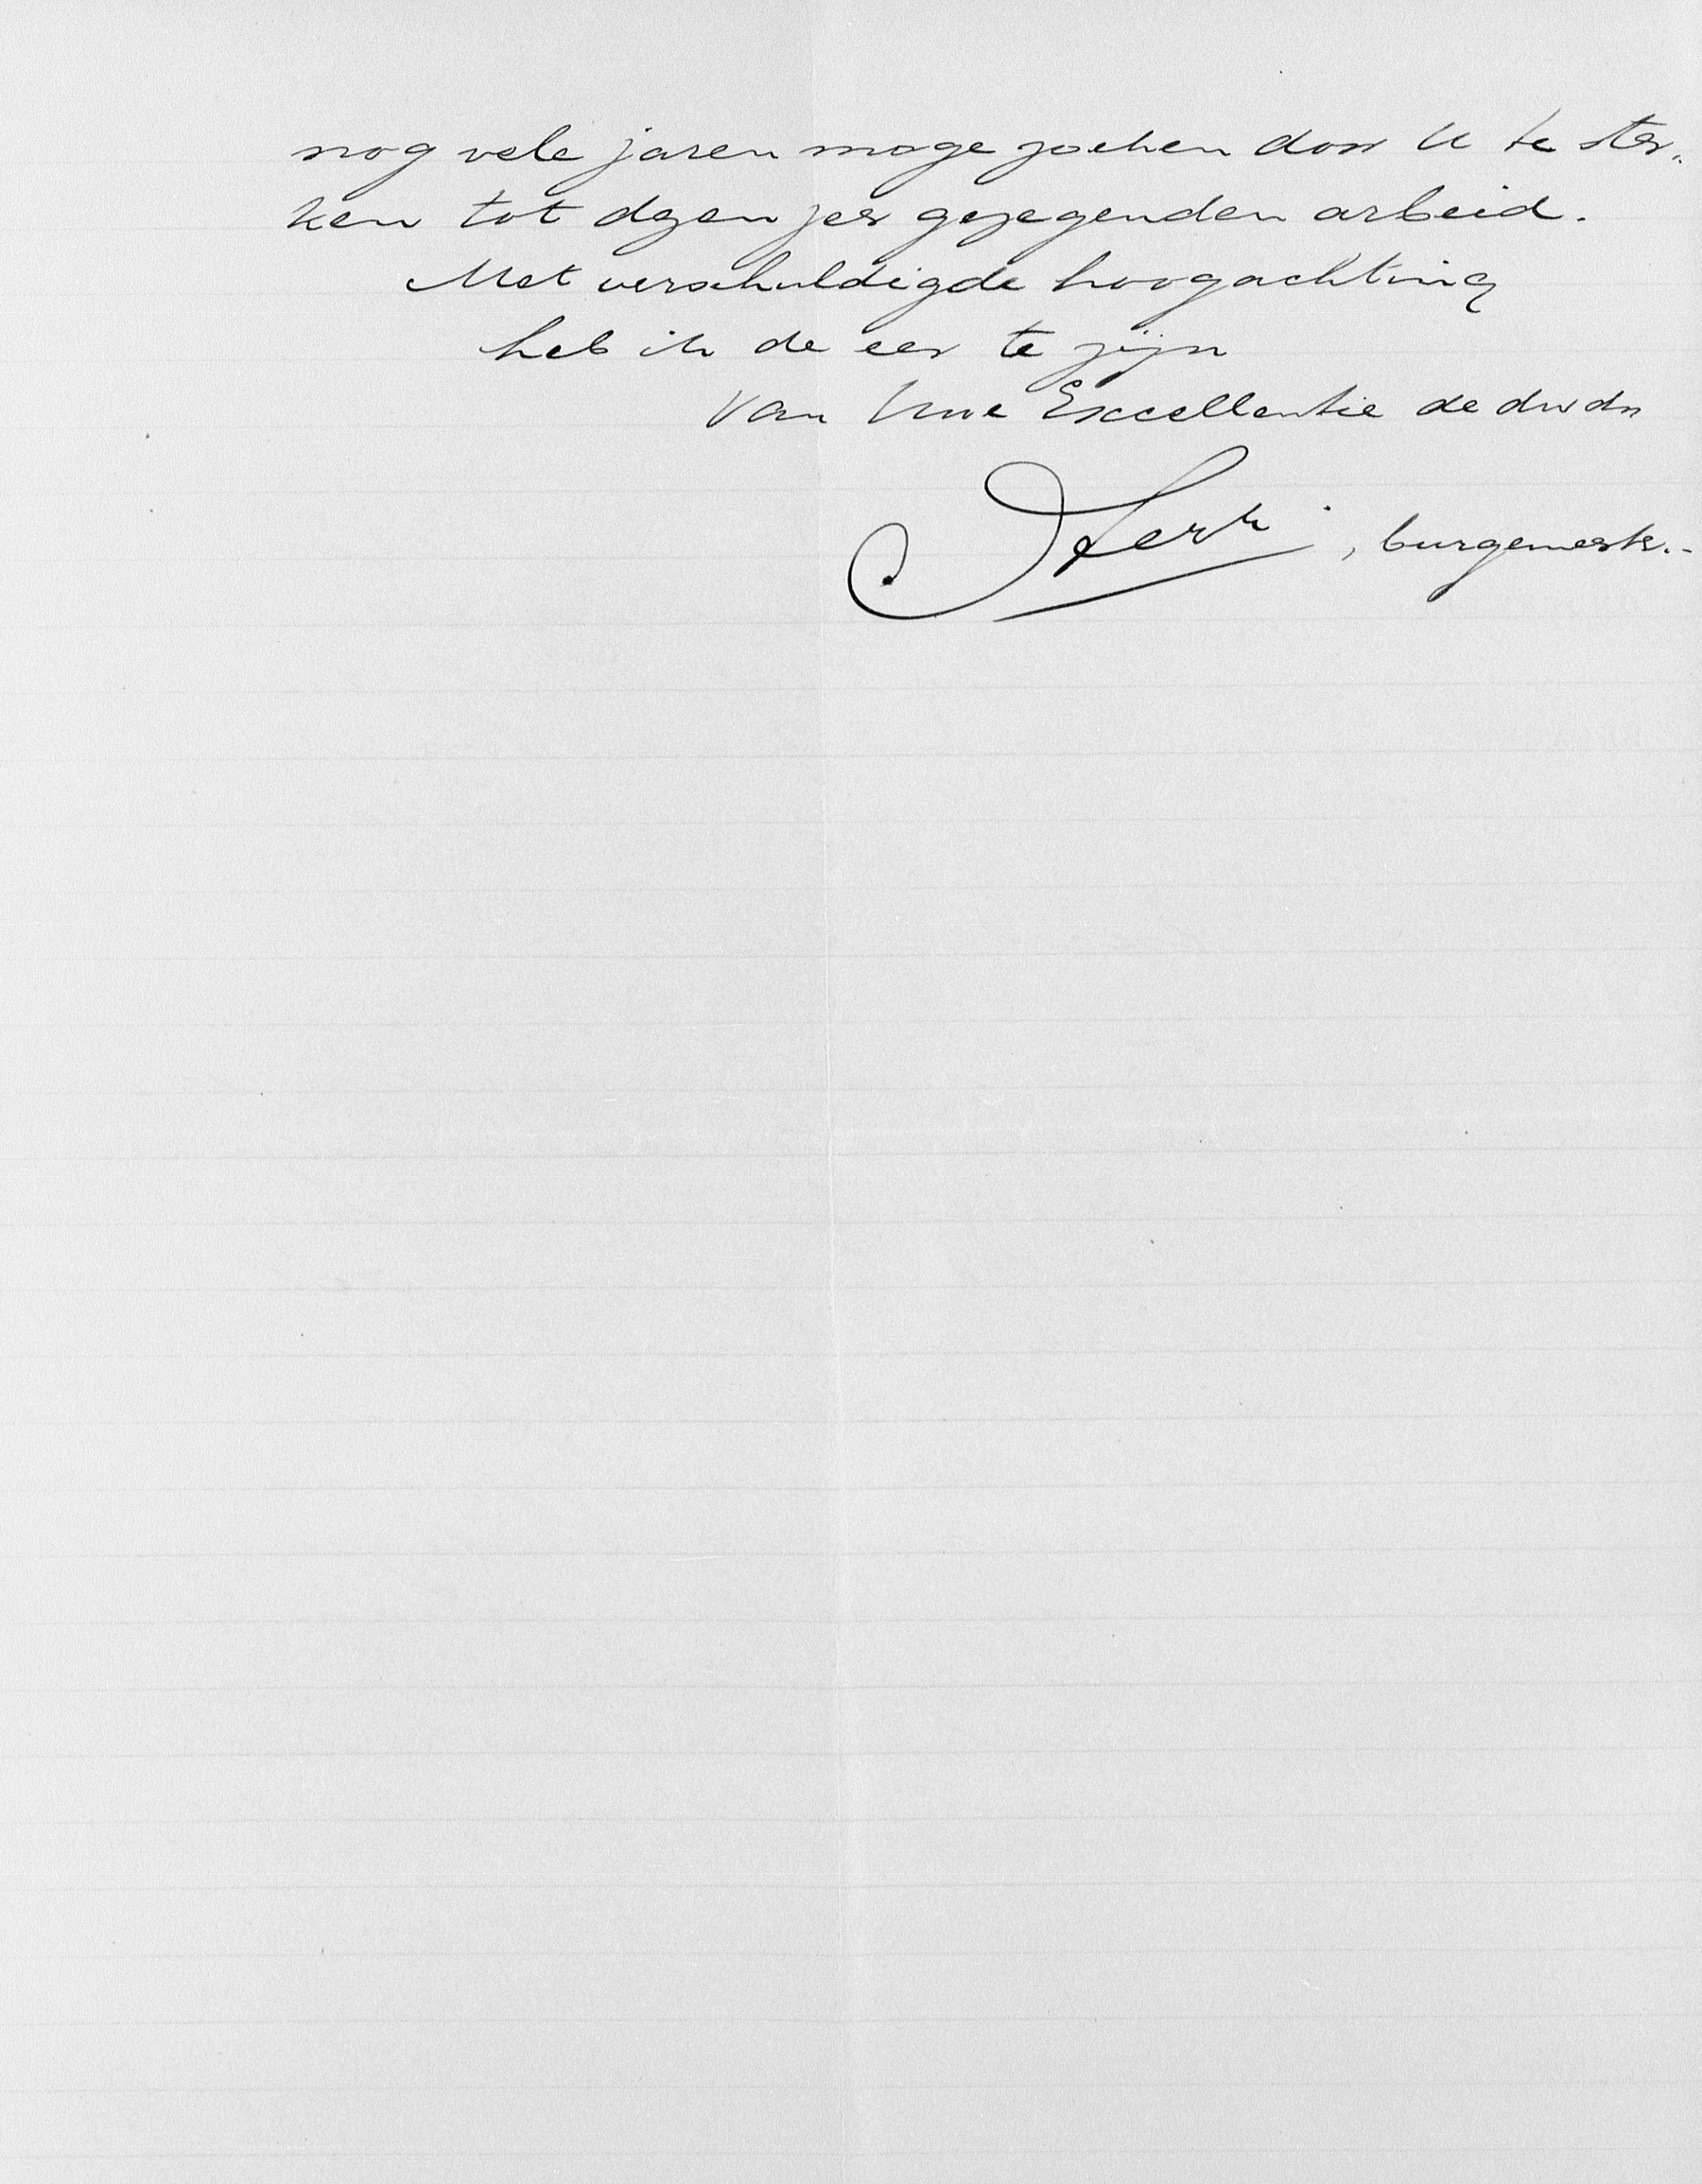 nog vele jaren moge zoeken door U te ster„
ken tot dezen zeer gezegenden arbeid.
Met verschuldigde hoogachting
heb ik de eer te zijn
Van Uwe Excellentie de dwdn
, burgemeester.-